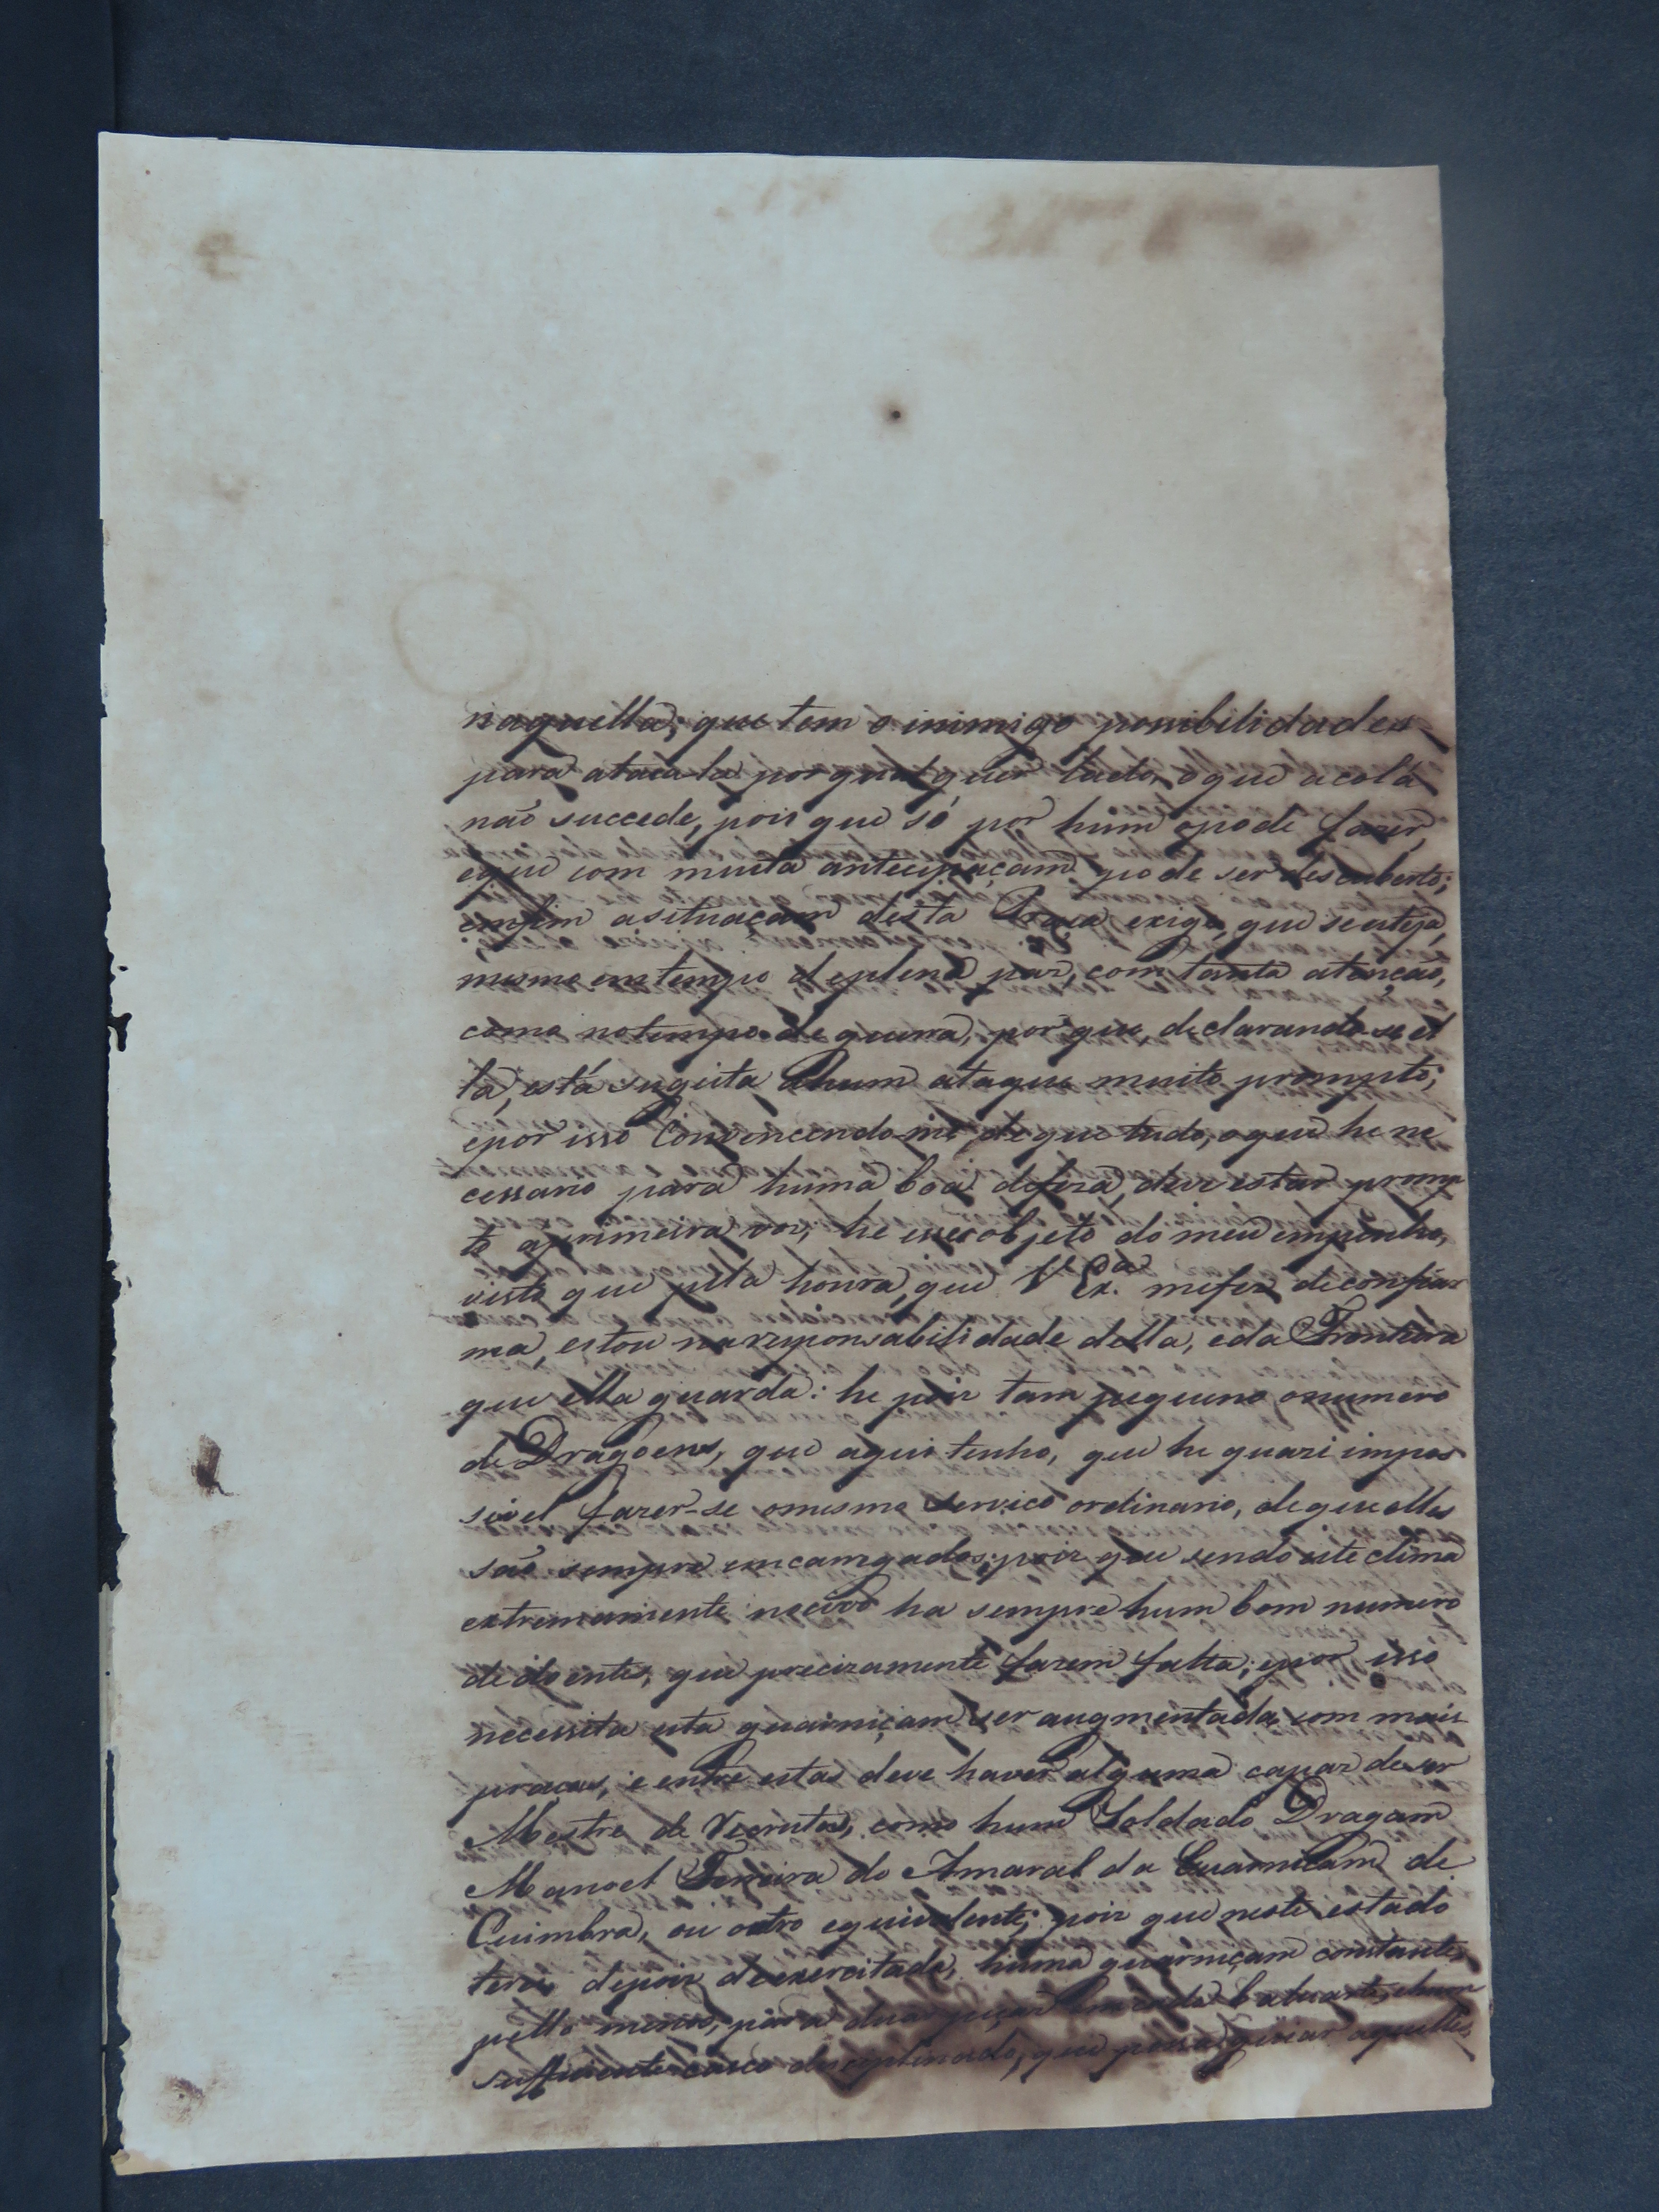 naquella; que tem o inimigo possibilidades
para ataca-la por qual quer lado, o que acolá
não succede, pois que só por hum o pode fazer,
e que com muita antecipaçam pode ser descuberto;
emfim a situaçam desta Praça exige, que se esteja,
mesmo em tempo de plena paz, com tanta atenção,
como no tempo de guerra, por que declarando-se el
la, está sugeita a hum ataque muito prompto;
e por isso Convencendo-me de que tudo, o que he ne
cessario para huma boa defeza, deve estar promp
to a primeira voz, he esse o objeto do meu empenho,
visto que pela honra, que V. Ex.ª me fez de confiar
ma, estou na responsabilidade della, e da Fronteira
que ella guarda: he pois tam pequeno o numero
de Dragoens, que aqui tenho, que he quazi impos
sivel fazer-se o mesmo serviço ordinario, de que elles
são sempre emcarregados; pois que sendo este clima
extremamente nocivo ha sempre hum bom numero
de doentes, que precizamente fazem falta; e por isso
necessita esta guarniçam ser augmentada com mais
praças, e entre estas deve haver alguma capaz de ser
Mestre de recrutas, como hum Soldado Dragam
Manoel Ferreira do Amaral da Guarniçam de
Cuimbra, ou outro equivalente; pois que neste estado
terei depois de exercitada, huma guarniçam constante,
pello menos, para duas peças em cada baluarte, e hum
sufficiente casco disciplinado, que possa guiar aquelles,